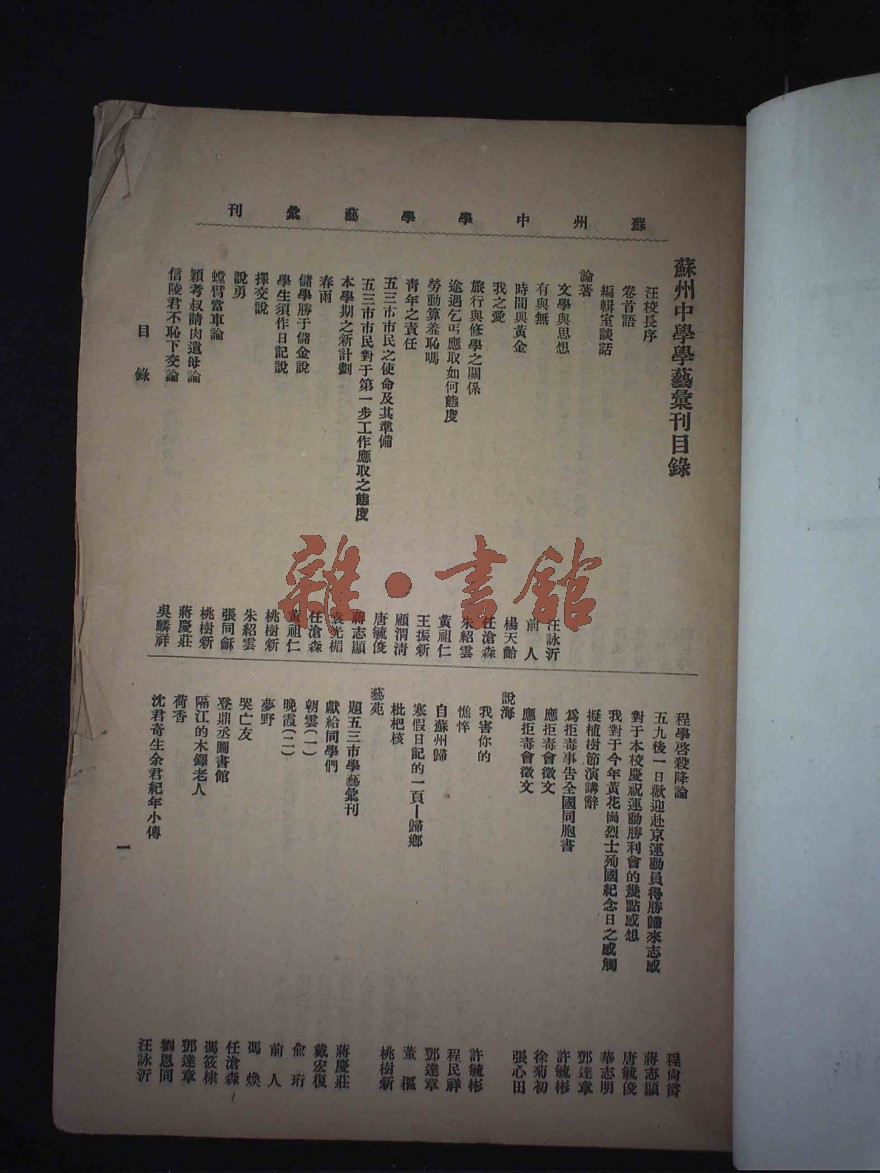 蘇州中學學藝彙刊
蘇州中學學藝彙刊目錄
汪校長序
卷首語
編輯室談話
論著
文學與思想 汪詠沂
有與無 前人
時間與黃金 楊天飴
我之愛 任滄森
旅行與修學之關係 朱紹雲
途遇乞丐應取如何態度 黃祖仁
勞動算羞恥嗎 王振新
青年之責任 顧渭清
五三市市民之使命及其準備 唐毓俊
五三市市民對于第一步工作應取之態度 蔣志顯
本學期之新計劃 袁光楣
春雨 任滄森
儲學勝于儲金說 黃祖仁
學生須作日記說 桃樹新
擇交說 朱紹雲
說勇 張同龢
螳臂當車論 桃樹新
潁考叔請肉遺母論 蔣慶莊
信陵君不恥下交論 吳麟祥
程學啓殺降論 程尚爵
五九後一日歡迎赴京運動員得勝歸來志感 蔣志顯
對于本校慶祝運動勝利會的幾點感想 唐毓俊
我對于今年黃花崗烈士殉國紀念日之感觸 華志明
擬植樹節演講辭 鄧達章
爲拒毒事告全國同胞書 許毓彬
應拒毒會徵文 徐菊初
應拒毒會徵文 張心田
說海
我害你的 許毓彬
憔悴 程民祥
自蘇州歸 鄧達章
寒假日記的一頁—歸鄉 董樞
枇杷核 桃樹新
藝苑
題五三市學藝彙刊 蔣慶莊
獻給同學們 戴宏復
朝雲(一) 兪珩
晚霞(二) 前人
夢野 馮煥
哭亡友 任滄森
登鼎丞圖書館 馮筱棣
隔江的木鐸老人 鄧達章
荷香 劉恩同
沈君奇生余君紀年小傳 汪詠沂
目錄
一
雜·書館